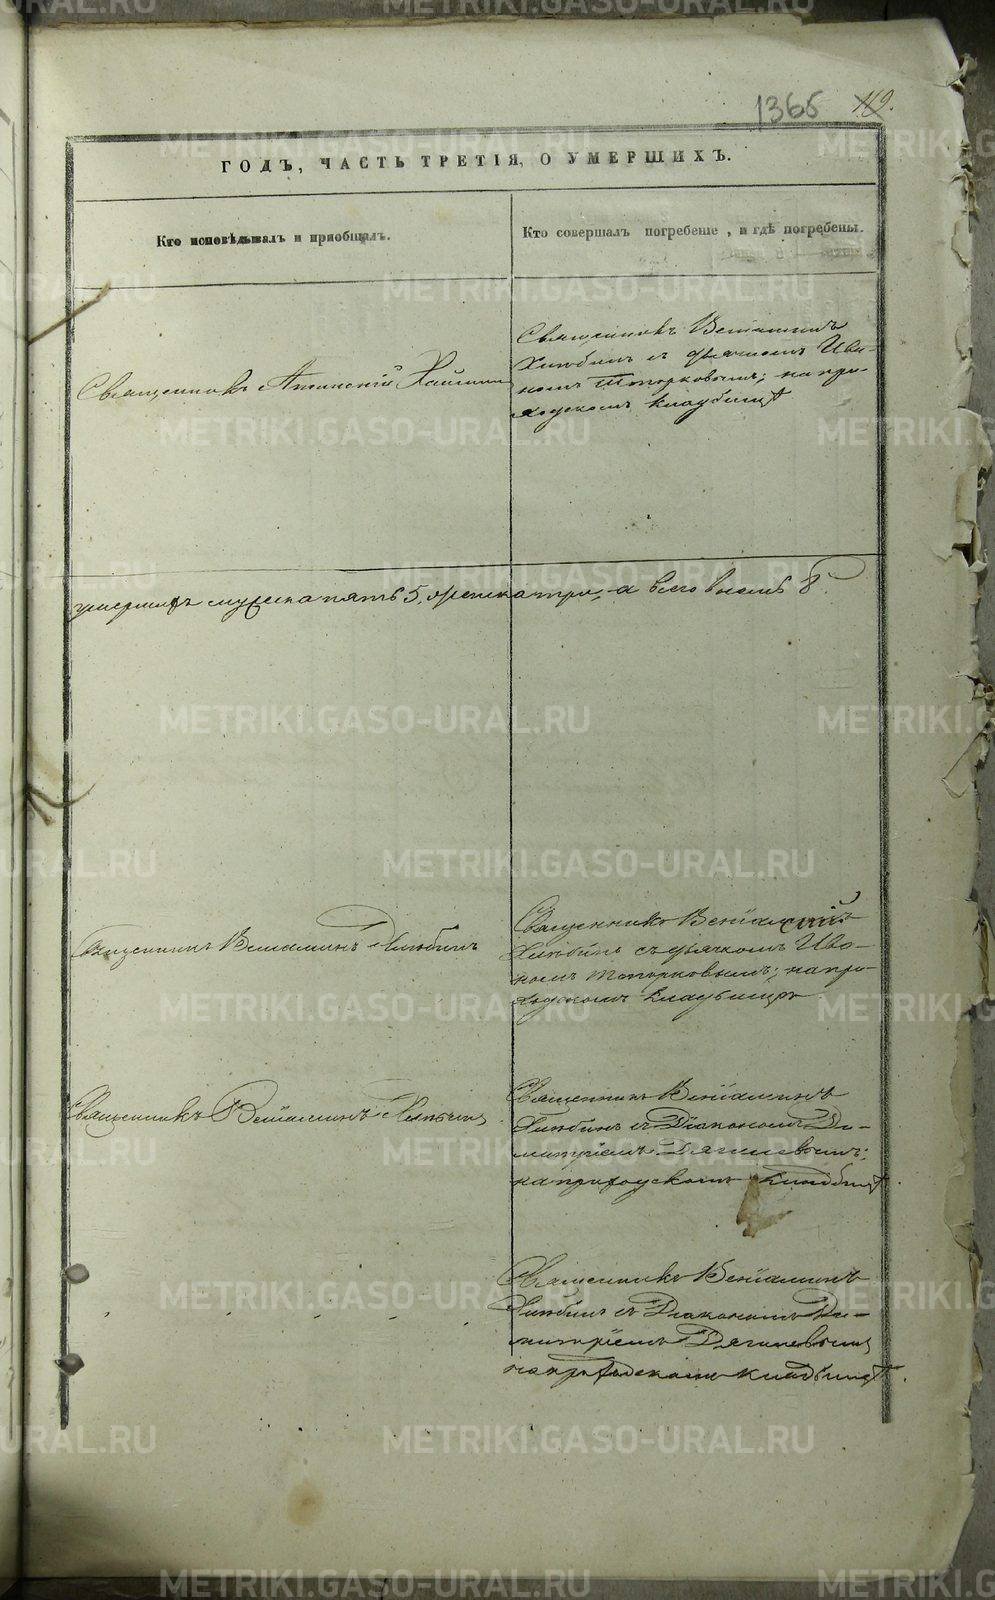 1366 119.
ГОДЪ, ЧАСТЬ ТРЕТІЯ, О УМЕРШИХЪ.
Кто исповѣдывалъ и пріобщалъ.
Кто совершалъ погребеніе, и гдѣ погребены.
Священникъ
Священникъ Веніаминъ
Хлюбинъ съ дьячкомъ Ива-
номъ Топорковымъ; на при-
ходскомъ кладбищѣ
умершихъ мужеска пять 5, женска три, а всего восемь 8.
Священникъ Веніаминъ Хлюбинъ
Священникъ Веніаминъ
Хлюбинъ съ дьячкомъ Ива-
номъ Топорковымъ; на при-
ходскомъ кладбищѣ
Священникъ Веніаминъ Хлюбинъ
Священникъ Веніаминъ
Хлюбинъ съ Діакономъ Ди-
митріемъ Дягилевымъ;
на приходскомъ кладбищѣ.
Священникъ Веніаминъ
Хлюбинъ съ Діакономъ Ди-
митріемъ Дягилевымъ
на приходскомъ кладбищѣ.
METRIKI.GASO-URAL.RU